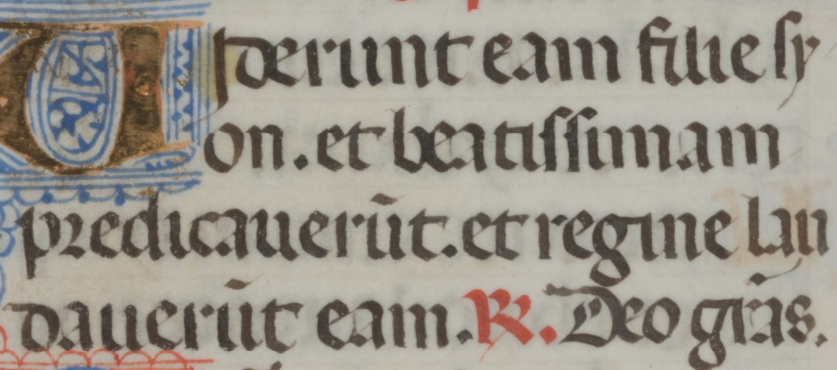 Viderunt eam filie sy
on. et beatissimam
predicauerūt. et regine lau
dauerūt eam. R. Deo grās.